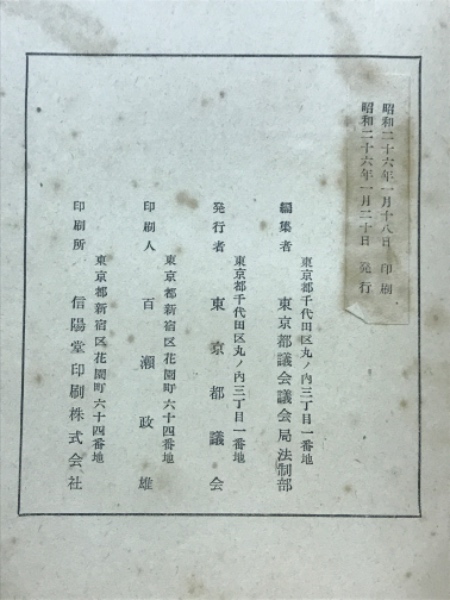 昭和二十六年一月十八日 印刷
昭和二十六年一月二十日 発行
東京都千代田区丸ノ内三丁目一番地
編集者 東京都議会議会局法制部
東京都千代田区丸ノ内三丁目一番地
発行者 東京都議会
東京都新宿区花園町六十四番地
印刷人 百瀬政雄
東京都新宿区花園町六十四番地
印刷所 信陽堂印刷株式会社